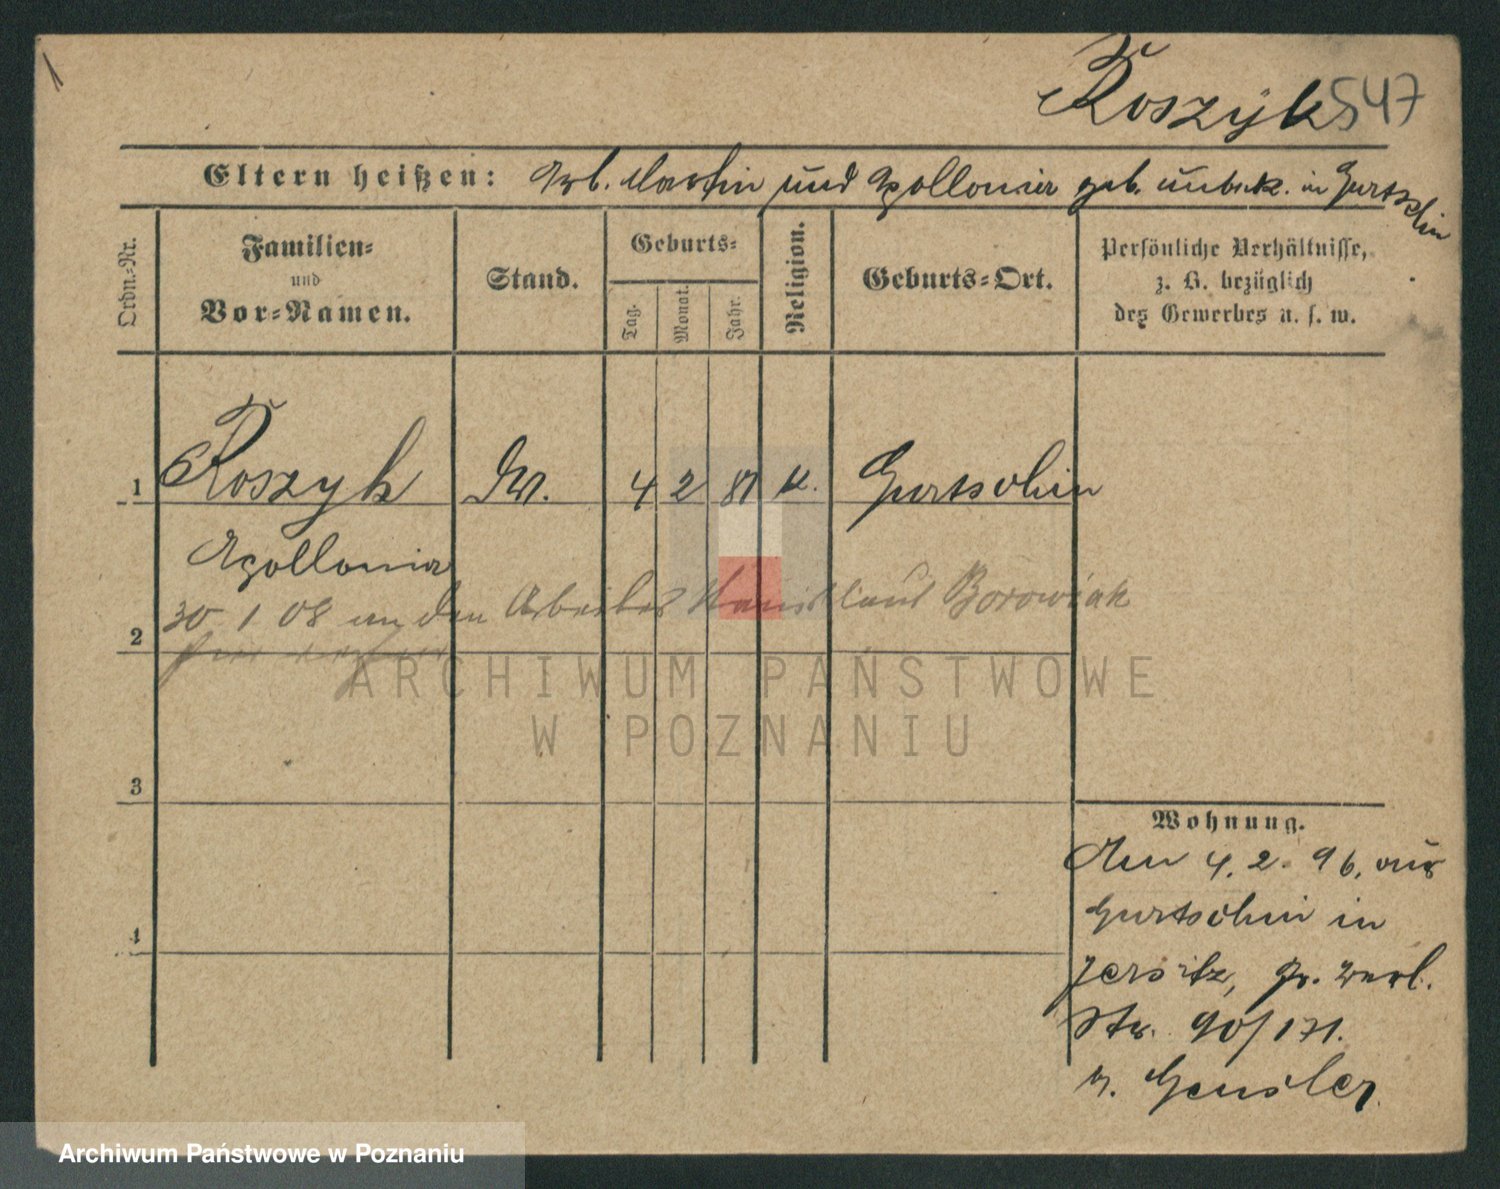 1
Koszyk 547
Eltern heißen: Arb. Martin und Apollonia geb. unbek. in Gurtschin
Ordn.-Nr.
Familien-
und
Vor-Namen.
Stand.
Geburts-
Tag.
Monat.
Jahr.
Religion.
Geburts-Ort.
Persönliche Verhältnisse,
z. B. bezüglich
des Gewerbes u. s. w.
1 Koszyk 4 2 81 k. Gurtschin
Apollonia
30 1 08 an den Arbeiter Stanislaus Borowiak
2
ARCHIWUM PAŃSTWOWE
W POZNANIU
3
4
Wohnung.
Am 4. 2. 96. aus
Gurtschin in
Jersitz, Gr. Berl.
Str. 90/171.
b. Gensler
Archiwum Państwowe w Poznaniu